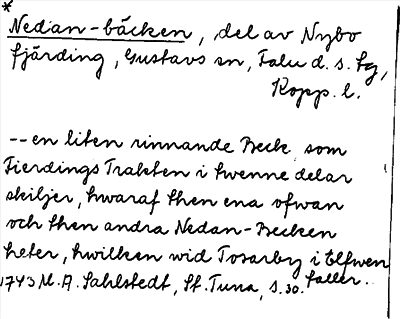 *
Nedan-bäcken, del av Nybo
fjärding, Gustavs sn, Falu d. s. fg,
Kopp. l.
-- en liten rinnande Beck som
Fierdings Trakten i twenne delar
skiljer, hwaraf then ena ofwan
och then andra Nedan-Becken
heter, hwilken wid Tosarby i Elfwen
faller.
1743 M. A. Sahlstedt, St. Tuna, s. 30.